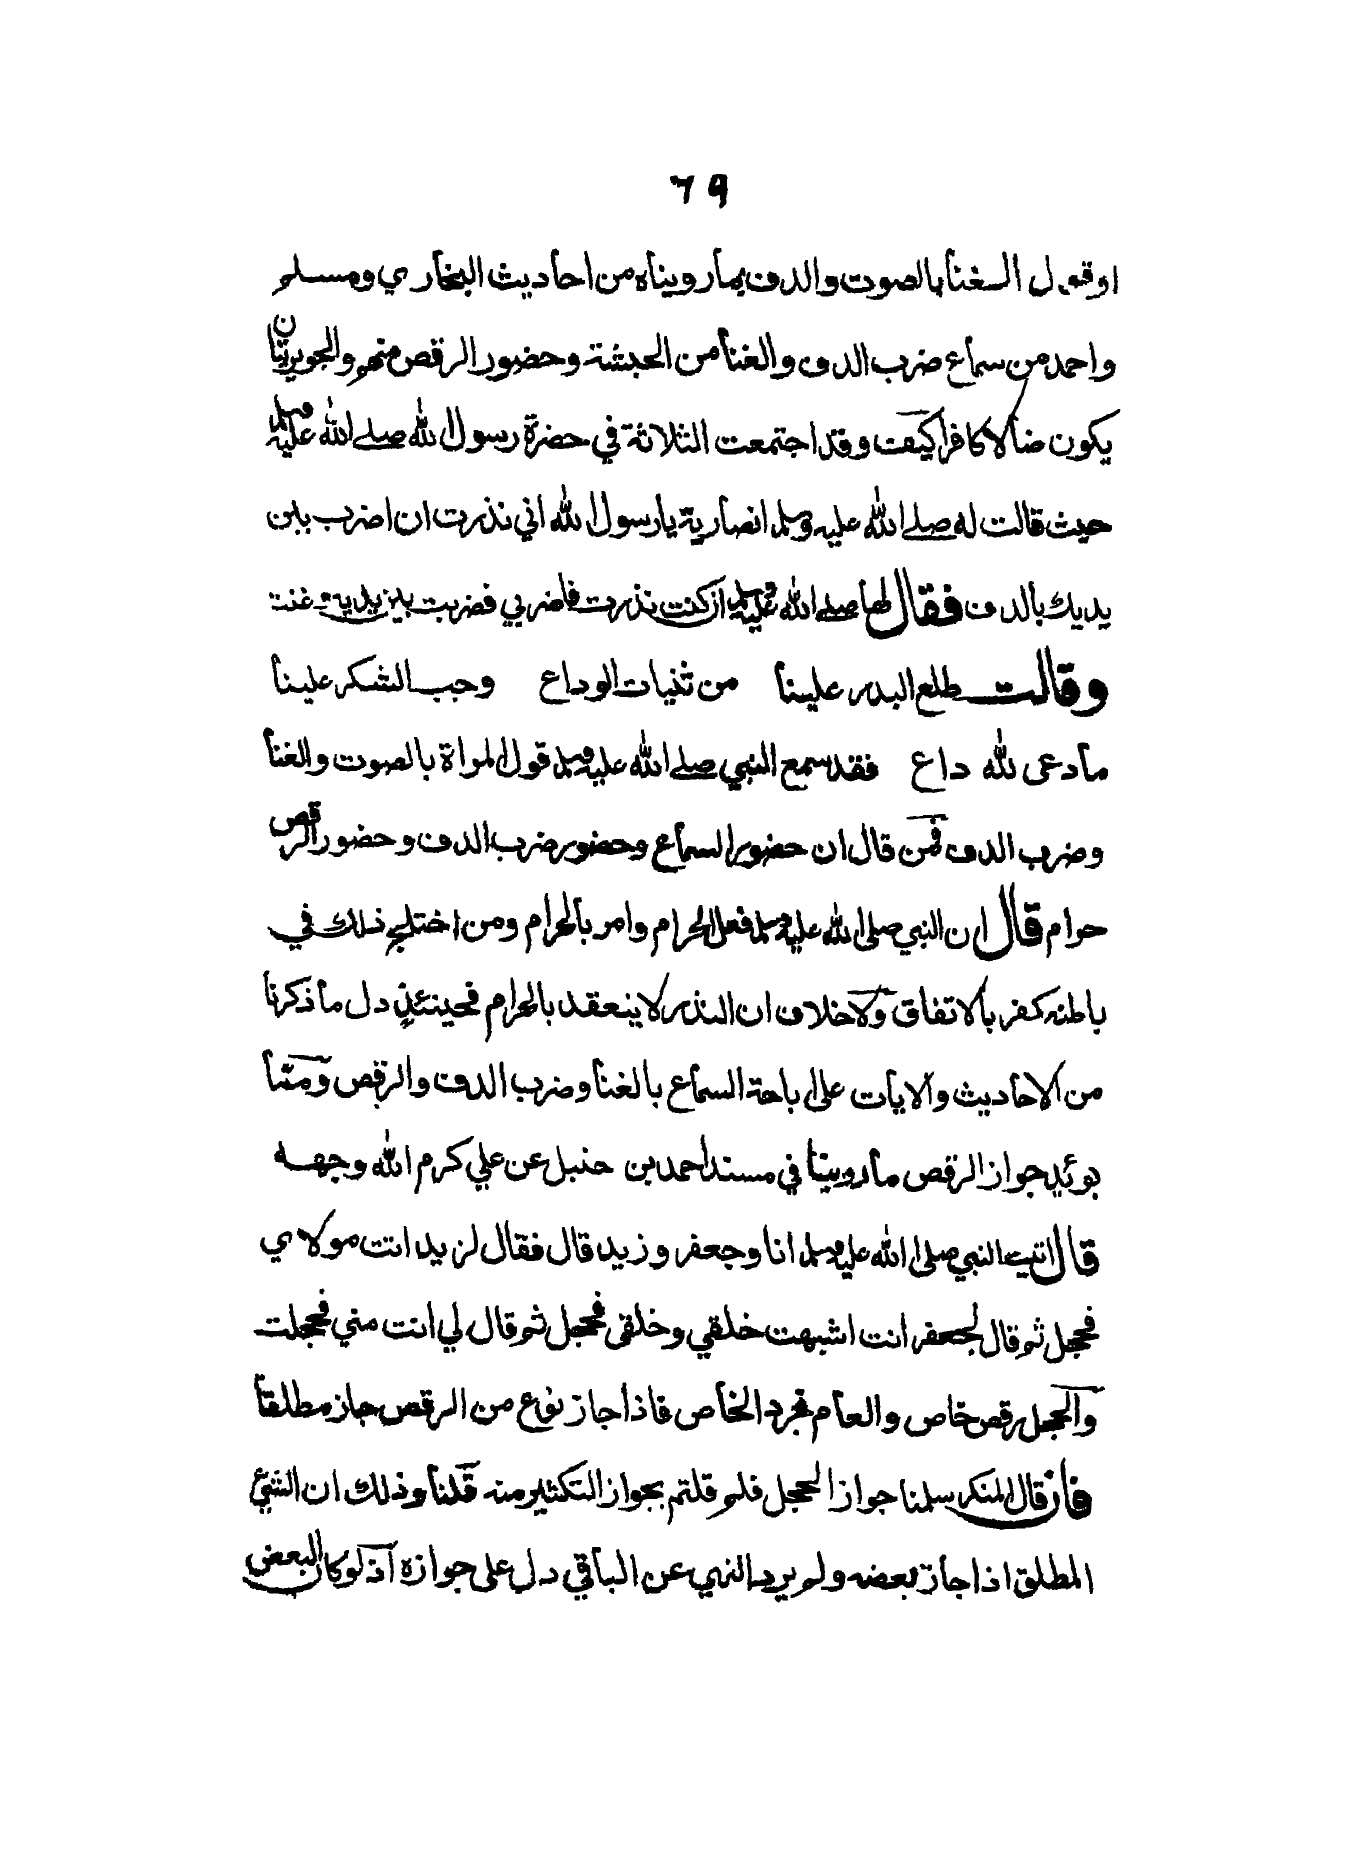 ٦٩
او قول الغنأ بالصوت والدف بمارويناه من احأديث البخاري ومسلم
واحمد من سمأع ضرب الدف والغنأ من الحبشة وحضور الرقص منهم والجويريتأن
يكون ضألا كافرا كيف وقد اجتمعت الثلاثة في حضرة رسول الله صلے الله عليه وسلم
حيث قالت له صلے الله عليه وسلم انصأرية يأرسول الله اني نذرت ان اضرب بين
يديك بألدف فقال لهأ صلے الله عليه وسلم ان كنت نذرت فأضربي فضربت بين يديه وغنت
وقالت طلع البدر علينأ من ثنيات الوداع وجب الشكر علينأ
مأدعى لله داع فقد سمع النبي صلے الله عليه وسلم قول المراة بالصوت والغنأ
وضرب الدف فمن قال ان حضور السمأع وحضور ضرب الدف وحضور الرقص
حرام قال ان النبي صلى الله عليه وسلم فعل الحرام وامر بألحرام ومن اختلج ذلك في
باطنه كفر بألاتفاق ولاخلاف ان النذر لاينعقد بالحرام فحينئذ دل مأذكرنأ
من الاحأديث والايأت على اباحة السمأع بألغنأ وضرب الدف والرقص وممأ
يوئد جواز الرقص مأروينأ في مسند احمد بن حنبل عن علي كرم الله وجهه
قال اتيت النبي صلى الله عليه وسلم انا وجعفر وزيد قال فقال لزيد انت مولاي
فحجل ثم قال لجعفر انت اشبهت خلقي وخلقي فحجل ثم قال لي انت مني فحجلت
والحجل رقص خاص والعأم مجرد الخأص فاذا جاز نوع من الرقص جاز مطلقأ
فأن قال المنكر سلمنا جواز الحجل فلم قلتم بجواز التكثير منه قلنأ وذلك ان الشيئ
المطلق اذا جاز بعضه ولم يرد النهي عن البأقي دل على جوازه اذ لو كان البعض